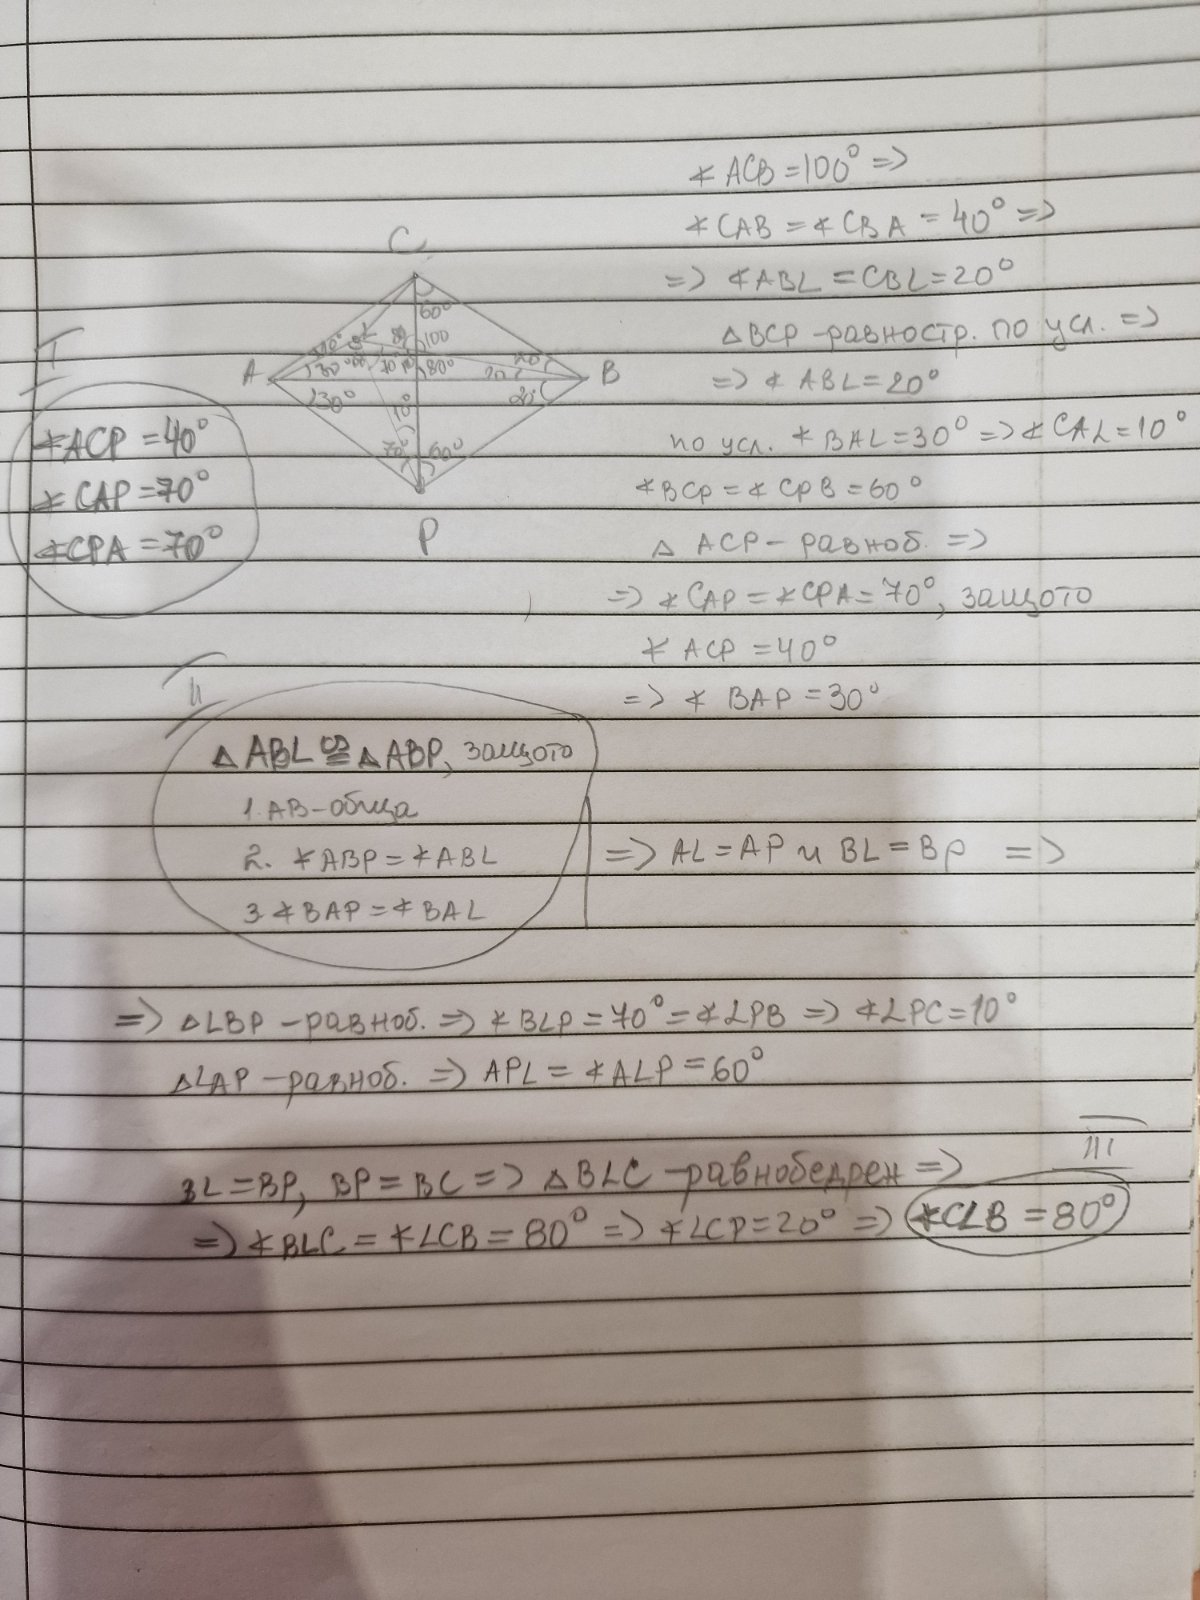 ∢ACB = 100° =>
∢CAB = ∢CBA = 40° =>
=> ∢ABL = CBL = 20°
△BCP - равностр. по усл. =>
=> ∢ABL = 20°
по усл. ∢BAL = 30° => ∢CAL = 10°
∢BCP = ∢CPB = 60°
△ACP - равноб. =>
=> ∢CAP = ∢CPA = 70°, защото
∢ACP = 40°
=> ∢BAP = 30°
C
60°
100
80°
10°
20°
20
20
A
B
10°
30°
70°
130°
10°
70°
60°
P
I
∢ACP = 40°
∢CAP = 70°
∢CPA = 70°
II
△ABL ≅ △ABP, защото
1. AB - обща
2. ∢ABP = ∢ABL
3. ∢BAP = ∢BAL
=> AL = AP и BL = BP =>
=> △LBP - равноб. => ∢BLP = 70° = ∢LPB => ∢LPC = 10°
△LAP - равноб. => APL = ∢ALP = 60°
BL = BP, BP = BC => △BLC - равнобедрен =>
III
=> ∢BLC = ∢LCB = 80° => ∢LCP = 20° => ∢CLB = 80°